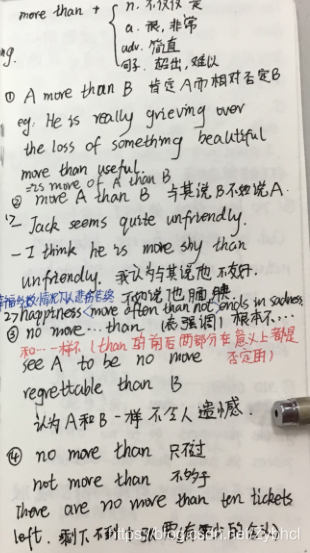 more than + n. 不仅仅是
a. 很,非常
adv. 简直
句子. 超出,难以
① A more than B 肯定A而相对否定B
eg. He is really grieving over
the loss of something beautiful
more than useful.
=is more of A than B
② more A than B 与其说B不如说A.
1> - Jack seems quite unfriendly.
- I think he is more shy than
unfriendly. 我认为与其说他不友好.
不如说他腼腆.
2> happiness more often than not ends in sadness
③ no more... than (表强调) 根本不...
和...一样不 (than的前后两部分在意义上都是
否定的)
see A to be no more
regrettable than B
认为A和B一样不令人遗憾.
④ no more than 只不过
not more than 不多于
there are no more than ten tickets
left. 剩下不到十张票